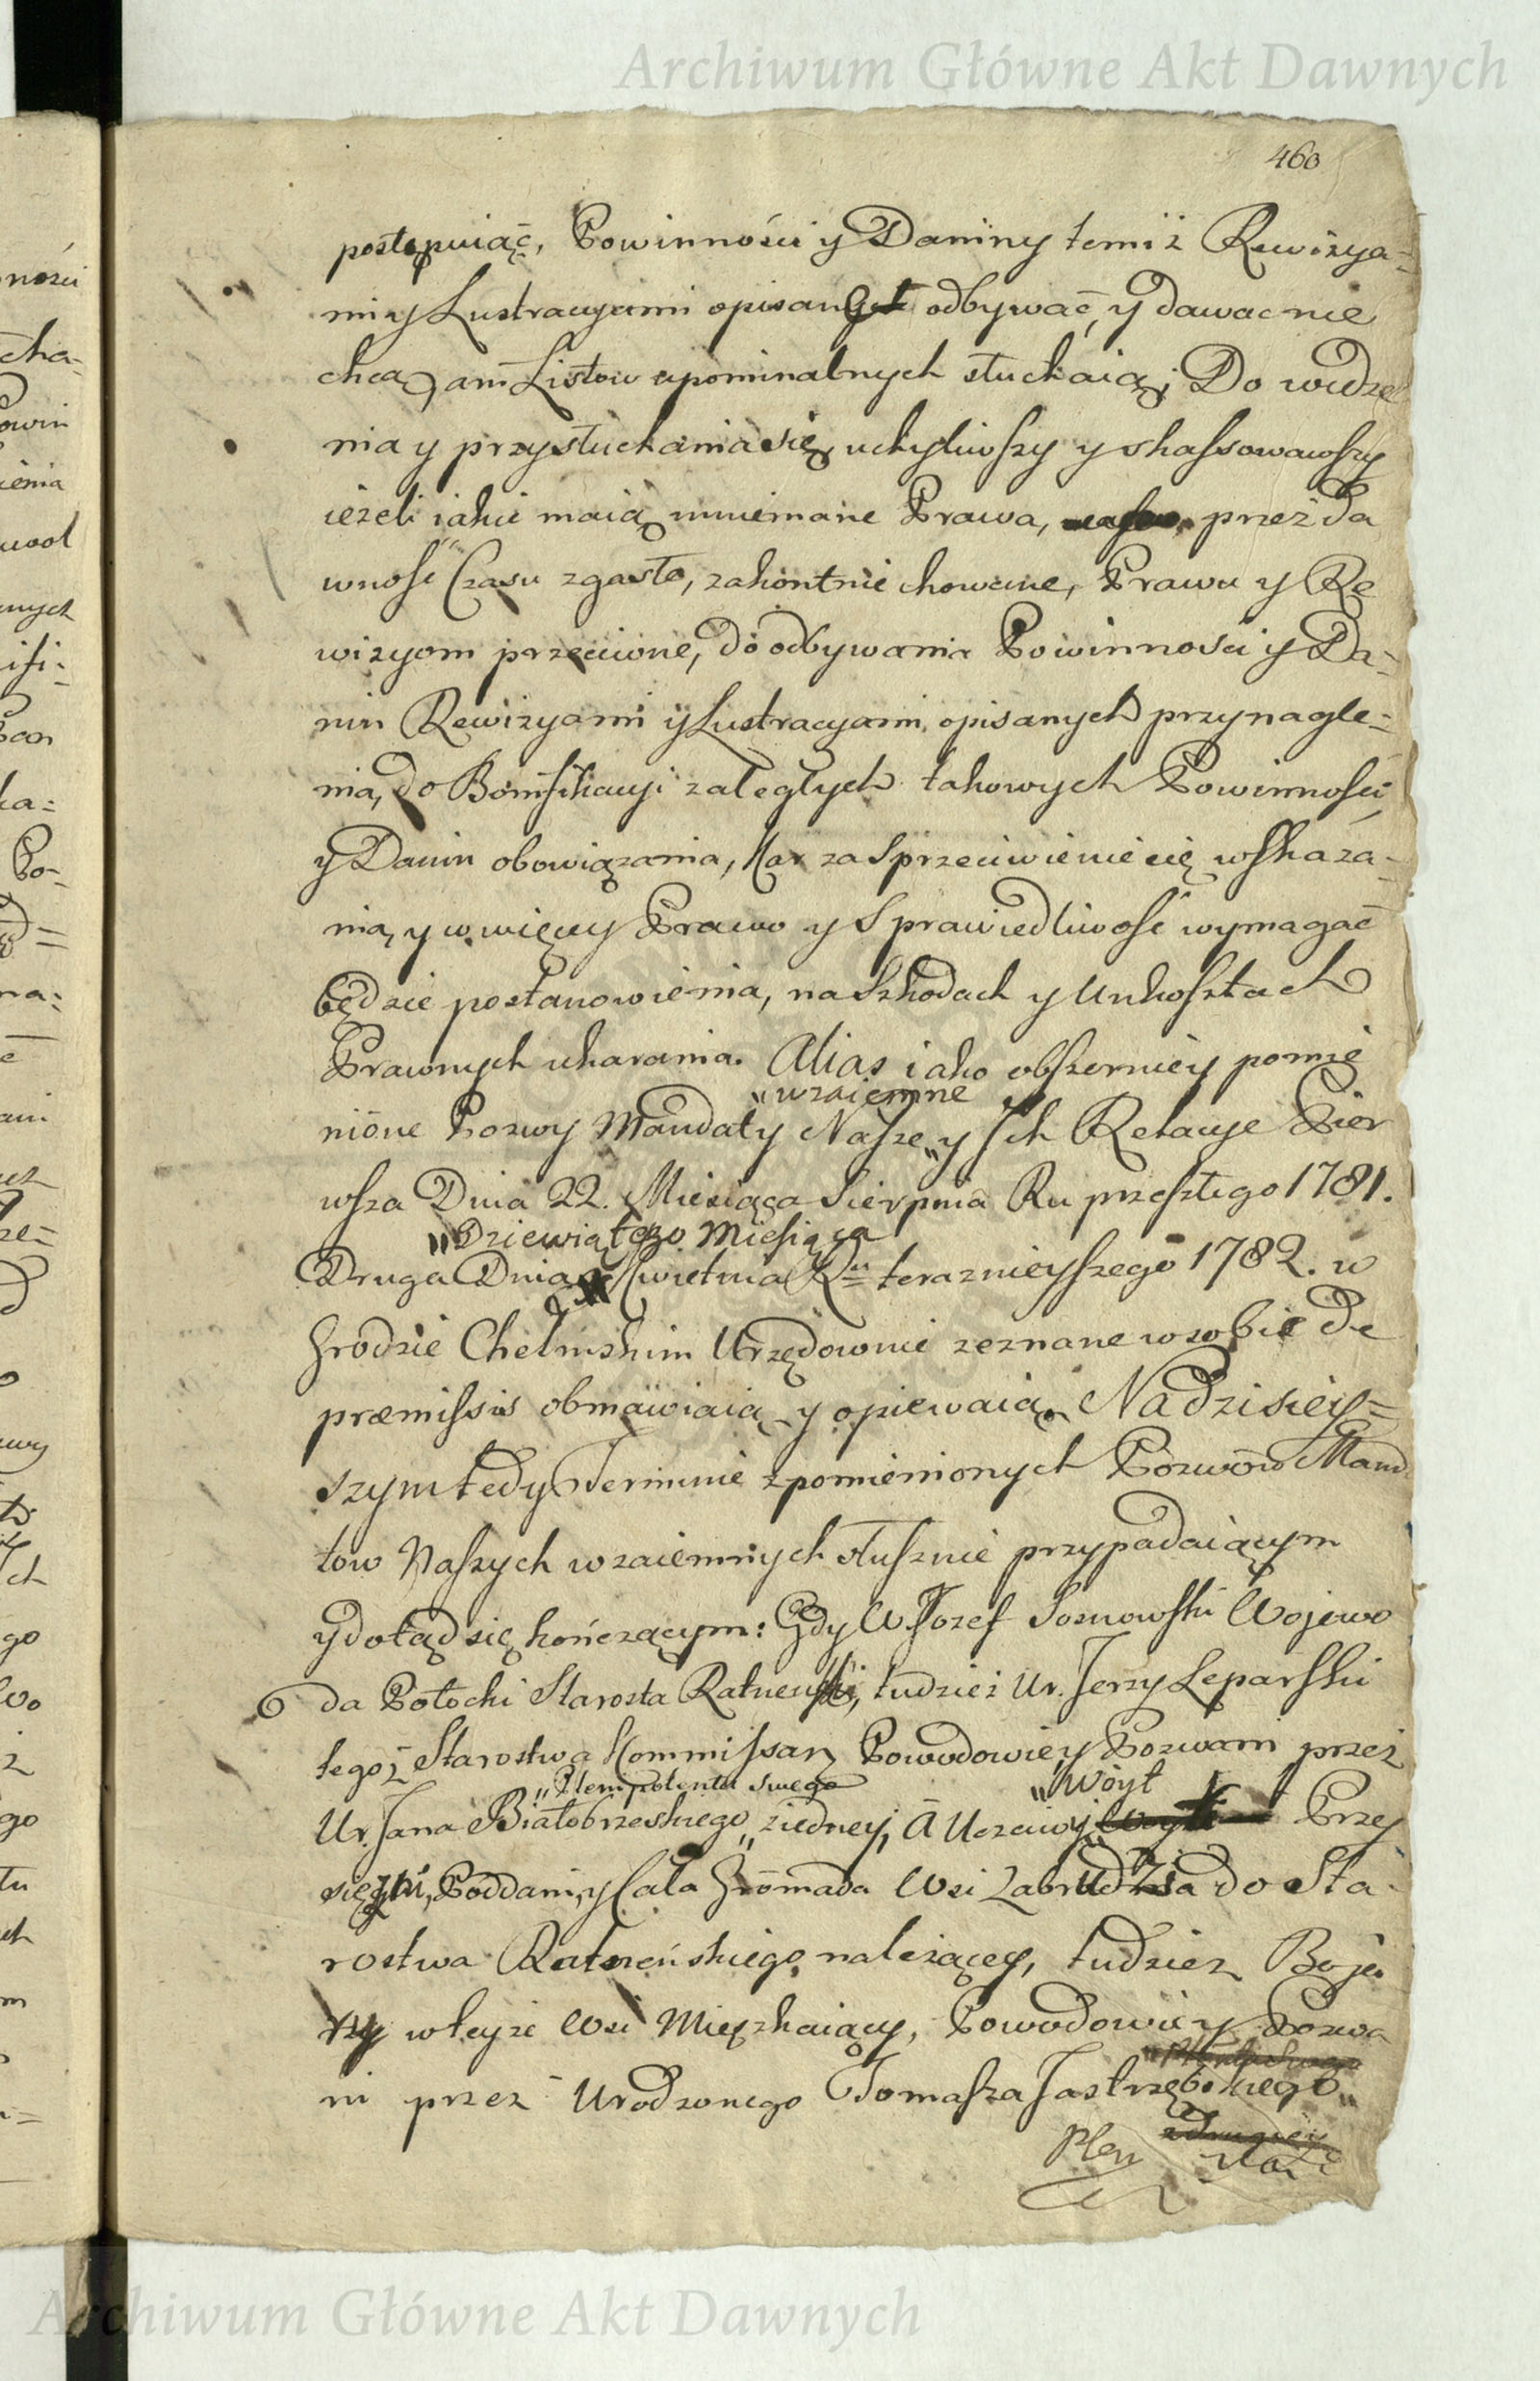 Archiwum Główne Akt Dawnych
460
postępuiąć, Powinności y Daniny temiż Rewizya=
mi y Lustracyami opisanych odbywać, y dawac nie
chcą, ani Listow upominalnych słuchaią; Do widze
nia y przysłuchania się, uchyliwszy y skassowawszy
ieżeli iakie maią mniemane Prawa, przez Da
wność Czasu zgasłe, zakontnie chowane, Prawu y Re
wizyom przeciwne, do odbywania Powinności y Da=
nin Rewizyami y Lustracyami opisanych przynagle=
nia, do Bonifikacyi zaległych takowych Powinności
y Danin obowiązania, Kar za Sprzeciwienie się wskaza=
nia, y w więcey Prawo y Sprawiedliwość wymagać
będzie postanowienia, na Szkodach y Unkosztach
Prawnych ukarania. Alias iako obszerniey pomie
"wzaiemne
nione Pozwy Mandaty Nasze " y Ich Relacye Pier
wsza Dnia 22. Miesiąca Sierpnia Ru przeszłego 1781.
"Dziewiątego Miesiąca
Druga Dnia Kwietnia Ru teraznieyszego 1782. w
Grodzie Chełmskim Urzędownie zeznane w sobie de
præmissis obmawiaią y opiewaią. Na dzisiey=
szym tedy Terminie z pomienionych Pozwow Mand
tow Naszych wzaiemnych słusznie przypadaiącym
y dotąd się kończącym: Gdy W. Jozef Sosnowski Wojewo
da Połocki Starosta Ratnenski, tudzież Ur. Jerzy Leparski
tegoż Starostwa Kommissarz Powodowie y Pozwani przez
"Plenipotenta swego "Woyt
Ur. Jana Białobrzeskiego " z iedney, A Uczciwy Przy
siężni, Poddani, y Cała Gromada Wsi Zabrudzia do Sta=
rostwa Ratneńskiego należącey, tudzież Boja
rzy w teyże Wsi Mięszkaiący, Powodowie y Pozwa
ni przez Urodzonego Tomasza Jastrzębskiego "
Plen